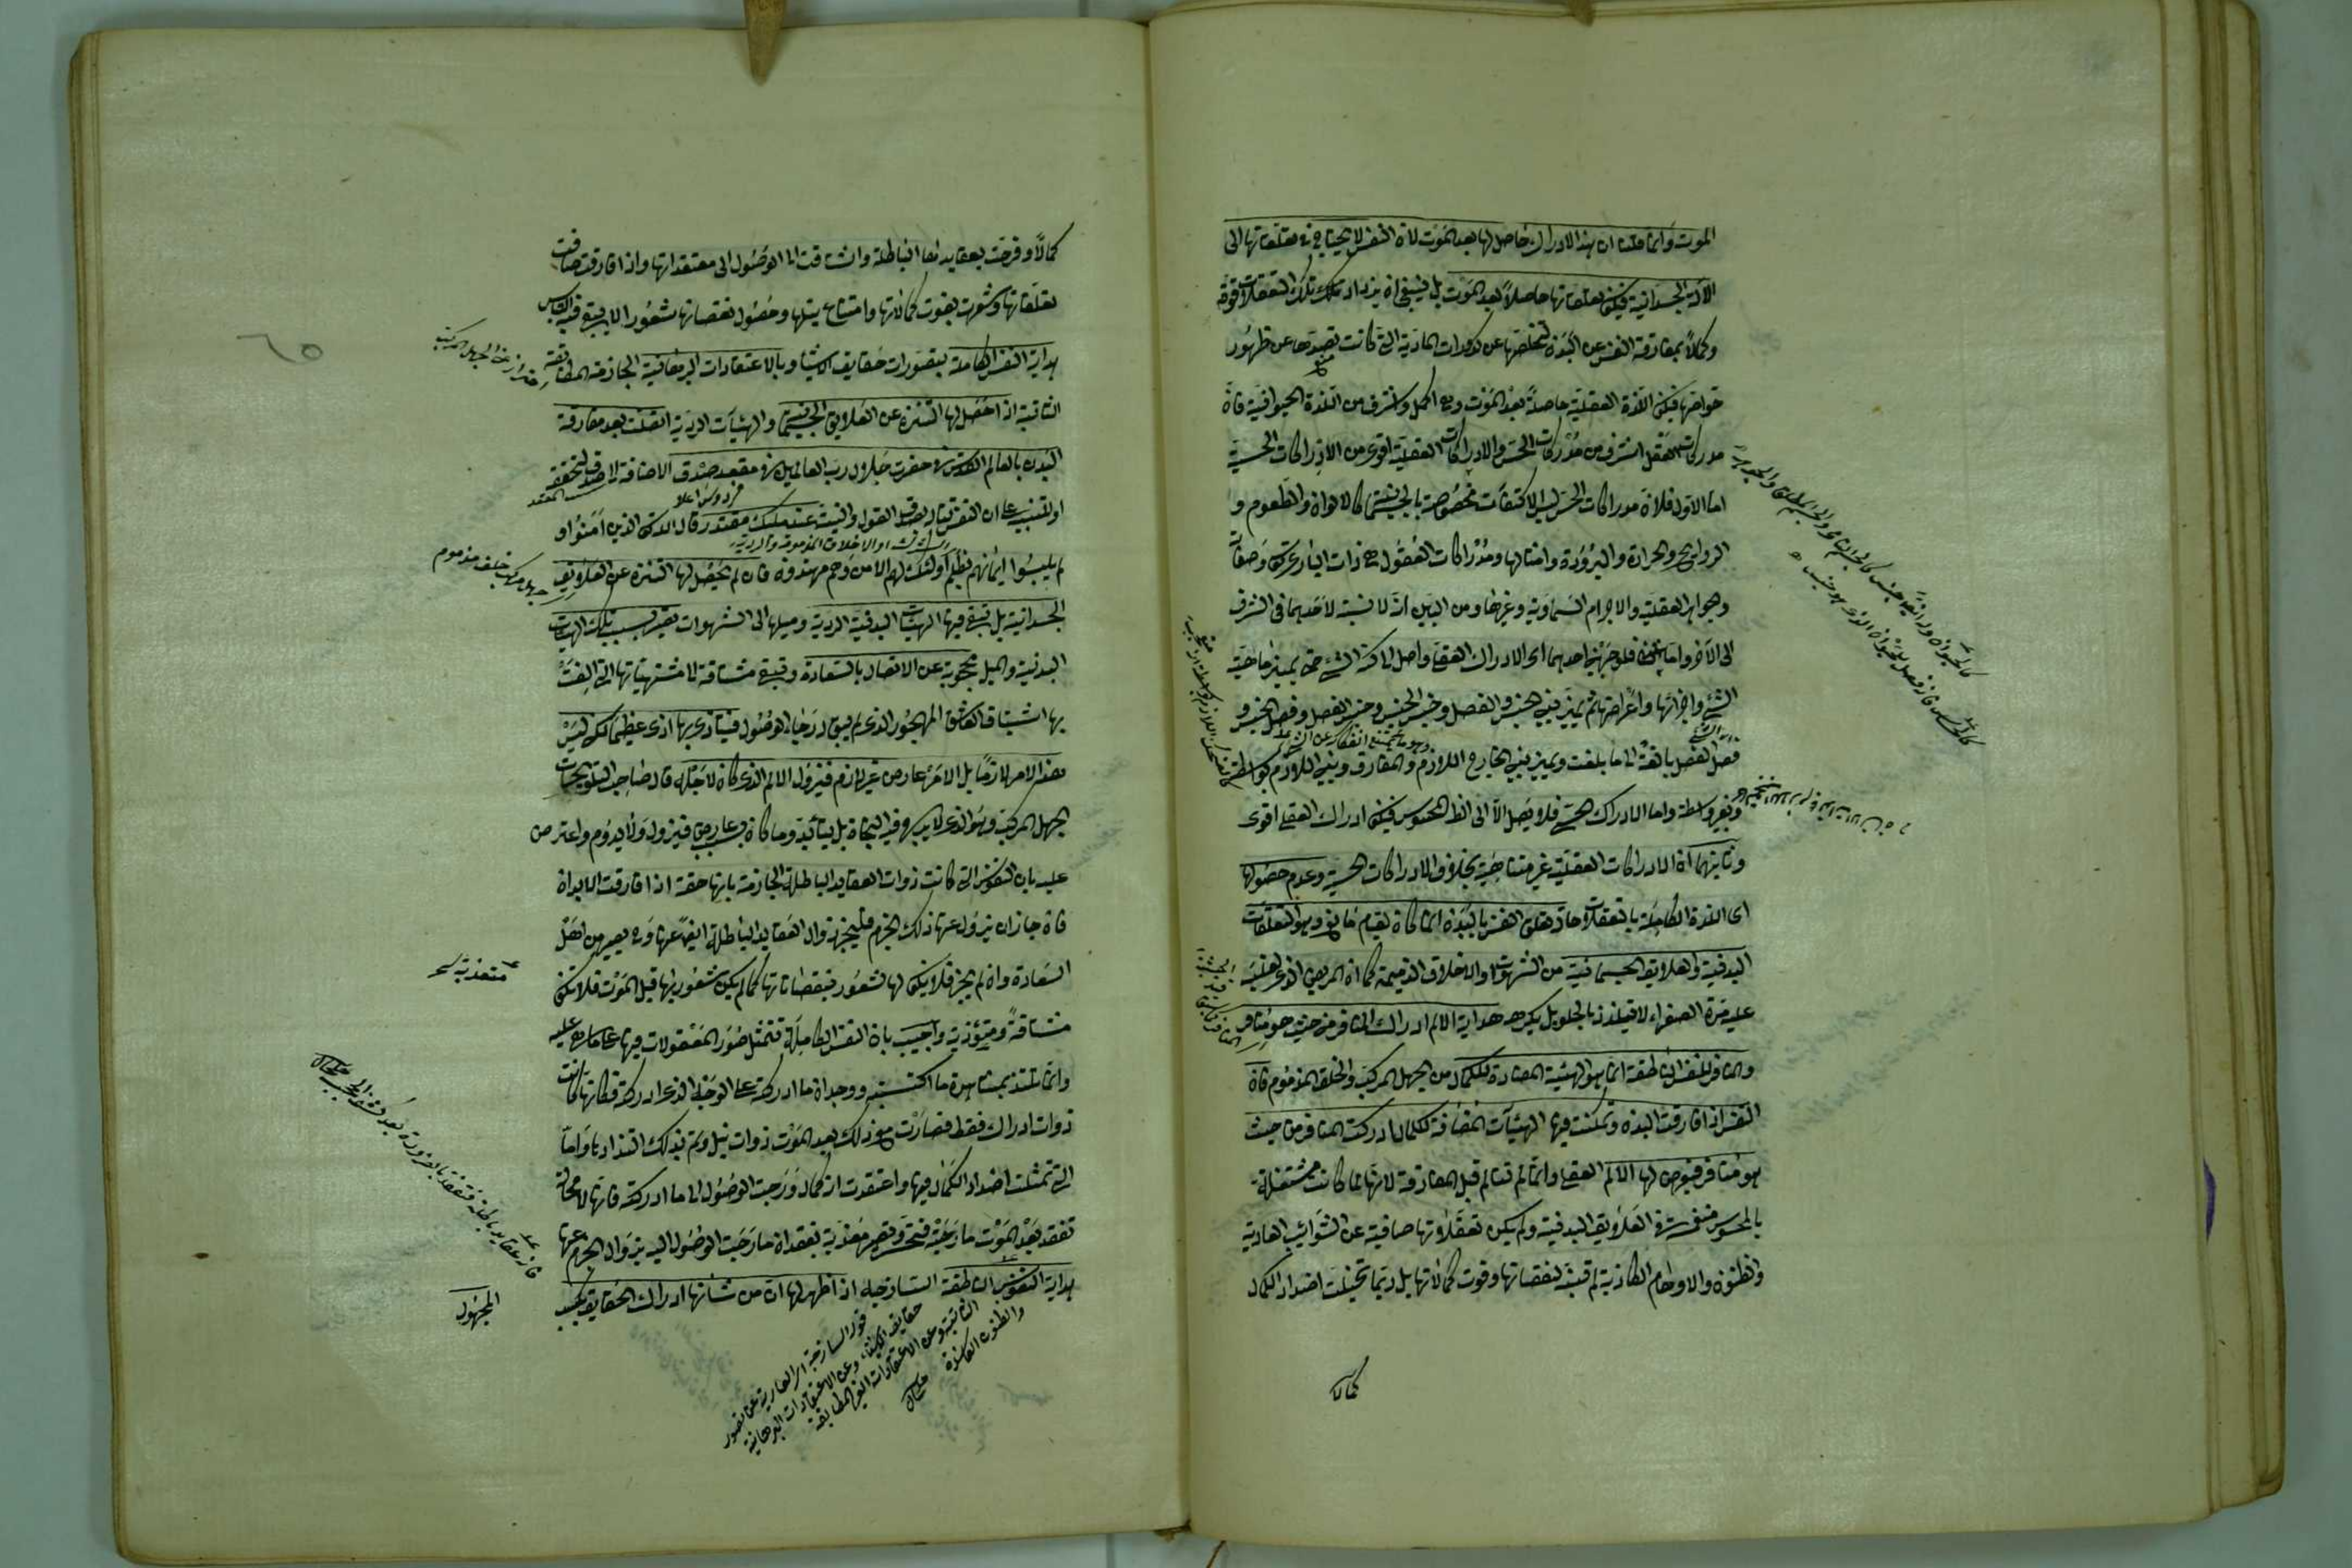 الموت وانما قلنا ان هذا الادراك حاصل لها بعد الموت لان النفس لا يحتاج في تعقلاتها الى
الآلة الجسدانية فيكون تعقلاتها حاصلاً بعد الموت بل ينبغي ان يزداد تلك التعقلات قوة
وكمالاً بمفارقة النفس عن البدن لتخلصها عن كدورات المادية التي كانت تصدها عن ظهور
خواصها فيكون اللذة العقلية حاصلة بعد الموت وهي اكمل واشرف من اللذة الحيوانية فان
مدركات العقل اشرف من مدركات الحس والادراكات العقلية اقوى من الادراكات الحسية
اما الاول فلان مدركات الحس ليس الا كيفيات مخصوصة بالجسم كالالوان والطعوم و
الروايح والحرارة والبرودة وامثالها ومدركات العقول هي ذات الباري تعالى وصفاته
وجواهر العقلية والاجرام السماوية وغيرها ومن البين ان لا نسبة لاحدهما في الشرف
الى الآخر واما الثاني فلوجهين احدهما ان الادراك العقلي واصل الى كنه الشئ حتى يميز ماهية
الشئ واجزائها واعراضها ثم يميز بين الجنس والفصل وجنس الجنس وجنس الفصل وفصل الجنس و
فصل الفصل بالغة الى ما بلغت ويميز بين الخارج اللازم والمفارق وبين اللازم بواسطة
وبغير واسطة واما الادراك الحسي فلا يصل الا الى ظاهر المحسوس فيكون ادراك العقلي اقوى
وثانيهما ان الادراكات العقلية غير متناهية بخلاف الادراكات الحسية وعدم حصولها
اى اللذة الكاملة بالتعقلات حال تعلق النفس بالبدن انما كان لقيام مانع وهو التعلقات
البدنية والعلايق الجسمانية من الشهوات والاخلاق الذميمة كما ان المريض الذي يغلب
عليه مرة الصفراء لا يتلذذ بالحلو بل يكرهه هداية الالم ادراك المنافر من حيث هو منافر
والمنافر للنفس الناطقة انما هو الهيئة المضادة للكمال من الجهل المركب والخلق المذموم فان
النفس اذا فارقت البدن وتمكنت فيها الهيئآت المضادة للكمال ادركت المنافر من حيث
هو منافر فيعرض لها الالم العقلي وانما لم تتألم قبل المفارقة لانها لما كانت مشتغلة
بالمحسوس منغمسة في العلايق البدنية ولم يكن تعقلاتها صافية عن الشوائب العادية
والظنون والاوهام الكاذبة لم تتنبه لنقصاتها وفوت كمالاتها بل ربما تخيلت اضداد الكمال
كمالا
كمالاً وفرحت بعقايدها الباطلة واشتاقت الى الوصول الى معتقداتها واذا فارقت صافت
تعقلاتها وشعرت بفوت كمالاتها وامتناع نيلها وحصول نقصاتها شعورا لا يبقى فيه التباس
هداية النفس الكاملة بتصورات حقايق الاشياء وبالاعتقادات البرهانية الجازمة المطابقة
الثابتة اذا حصل لها التنزه عن العلايق الجسمية والهيئآت الردية اتصلت بعد مفارقة
البدن بالعالم القدس في حضرت جلال رب العالمين في مقعد صدق الاضافة
او للتنبيه على ان النفس تنال بصدق القول والنية عند مليك مقتدر قال الله تعالى الذين امنوا و
لم يلبسوا ايمانهم بظلم اولئك لهم الامن وهم مهتدون فان لم يحصل لها التنزه عن العلايق
الجسدانية بل تبقى فيها الهيئآت البدنية الردية وميلها الى الشهوات تصير بسبب تلك الهيئآت
البدنية والميل محجوبة عن الاتصال بالسعادة وتبقى مشتاقة الى مشتهياتها التي الفت
بها اشتياق العاشق المهجور الذي لم يبق له رجاء الوصول فيتأذى بها اذى عظيما لكن ليس
هذا الامر لازما بل الامر عارض غير لازم فيزول الالم الذي كان لاجله قال صاحب التلويحات
الجهل المركب هو الذي لا يرجى فيه النجاة بل يتأبد وما كان بعارض فيزول ولا يدوم واعترض
عليه بان النفوس التي كانت ذوات العقايد الباطلة الجازمة بانها حقة اذا فارقت الابدان
فان جاز ان يزول عنها ذلك الجزم فليجز زوال العقايد الباطلة ايضا عنها وحـ يصير من اهل
السعادة وان لم يجز فلا يكون لها شعور بنقصاناتها كما لم يكن شعور بها قبل الموت فلا تكون
مشتاقة ومتوذية واجيب بان النفس الكاملة تتمثل صور المعقولات فيها على ما هي عليه
وانما تلتذ بمشاهدة ما اكتسبته ووجدان ما ادركته على الوجه الذي ادركته فكانها كانت
ذوات ادراك فقط فصارت مع ذلك بعد الموت ذوات نيل وتم بذلك التذاذها واما
التي تمثلت اضداد الكمال فيها واعتقدت انه كمال ورجت الوصول الى ما ادركته فانها لا محالة
تفقد بعد الموت ما رجته فتتحسر وتصير معذبة بفقدان ما رجت الوصول اليه بزوال الجزم عنها
هداية النفوس الناطقة الساذجة اذا ظهر لها ان من شأنها ادراك الحقايق بكسب
المجهول
قوله الساذجة اي العارية عن تصور
حقايق الاشياء وعن الاعتقادات البرهانية
الثابتة وعن الاعتقادات الغير المطابقة
والظنون الفاسدة
٦٥